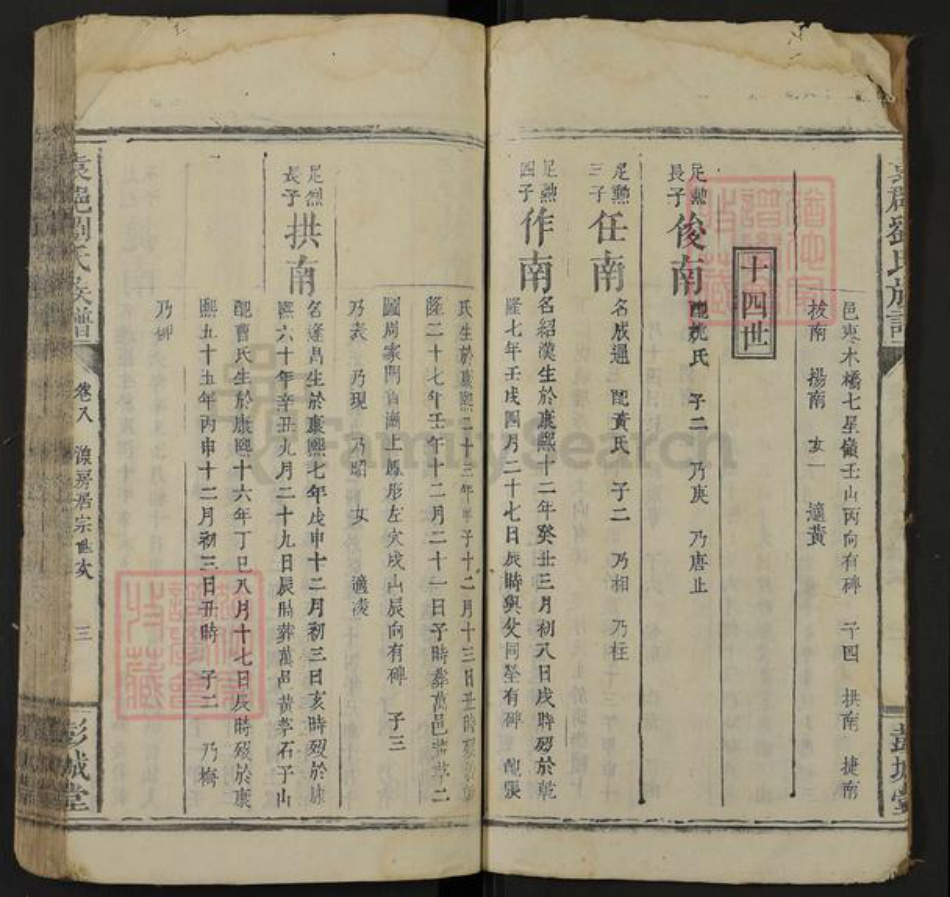 袁郡劉氏族譜
彭城堂
邑棗木橋七星嶺壬山丙向有碑 子四 拱南 捷南
拔南 揚南 女一 適黃
十四世
足勲長子 俊南 配姚氏 子二 乃庚 乃唐止
足勲三子 任南 名成通 配黃氏 子二 乃相 乃柱
足勲四子 作南 名紹漢生於康熙十二年癸丑三月初八日戌時歿於乾
隆七年壬戌四月二十七日辰時與父同塋有碑 配張
氏生於康熙二十三年甲子十二月十三日丑時歿於乾
隆二十七年壬午十二月二十一日子時葬萬邑
周家開 上鳳形左穴戌山辰向有碑 子三
乃表 乃現 乃昭 女 適凌
足烈長子 拱南 名逢昌生於康熙七年戊申十二月初三日亥時歿於康
熙六十年辛丑九月二十九日辰時葬萬邑黃茅石子山
配曹氏生於康熙十六年丁巳八月十七日辰時歿於康
熙五十五年丙申十二月初三日丑時 子二 乃梅
乃
袁邑劉氏族譜
卷八 房居宗世次 三
彭城堂
FamilySearch